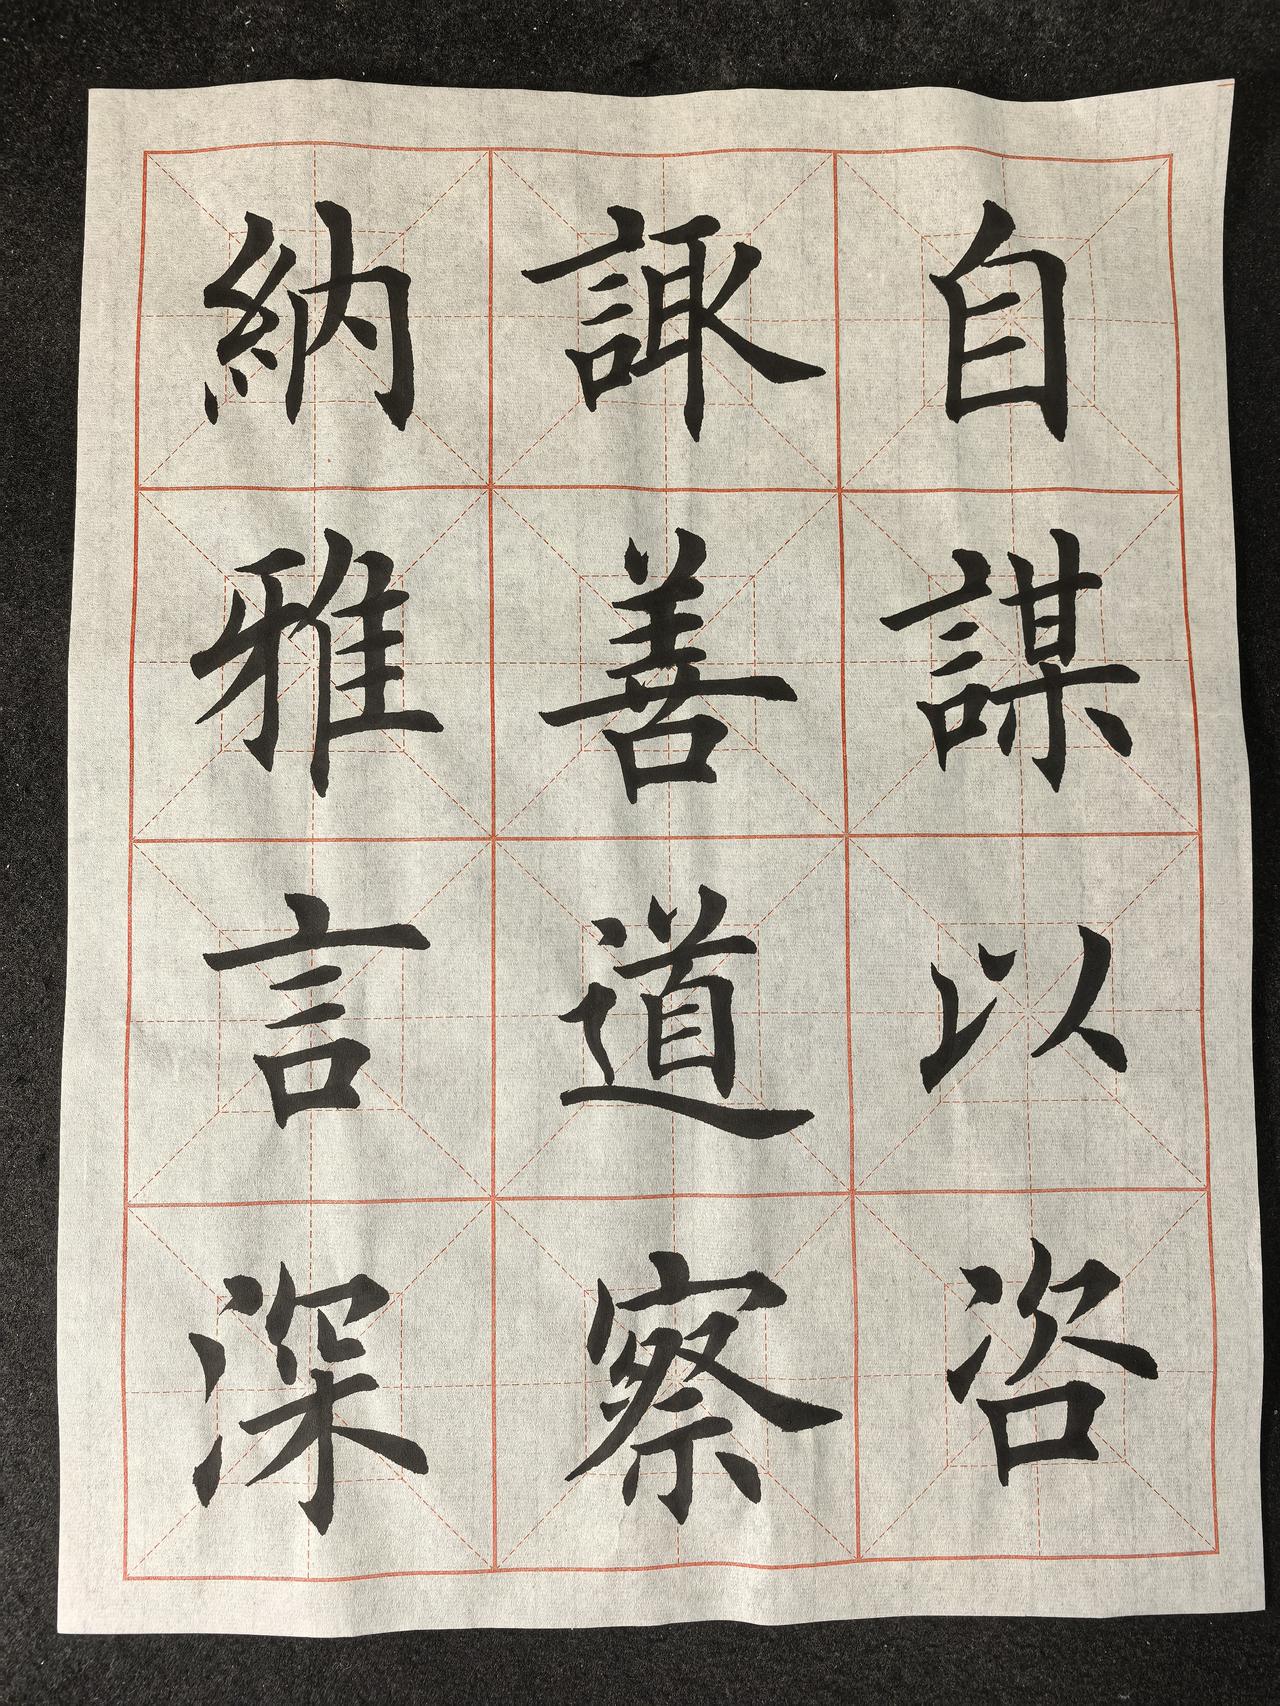 自謀以咨
諏善道察
納雅言深